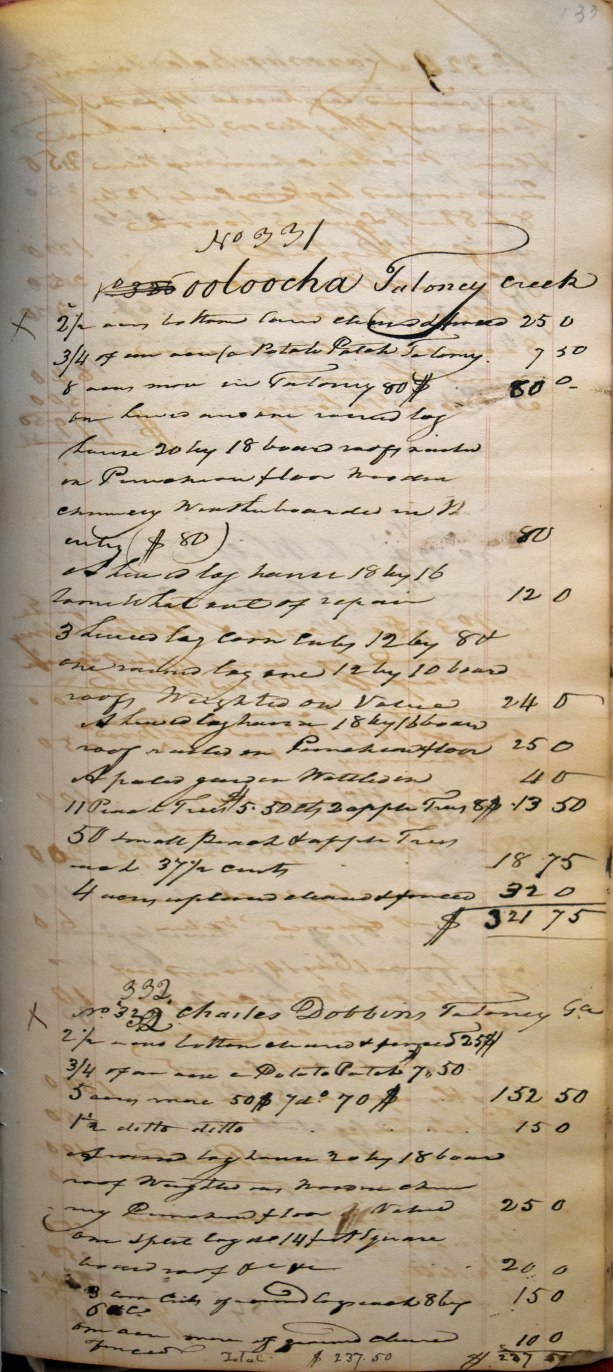 133
No 331
Ooloocha Taloney Creek
2 1/2 acres bottom land cleared & fenced 25 0
3/4 of an acre (a Potato Patch Taloney. 7 50
8 acres more in Taloney 80 $ 80 0-
one hewed and one round log
house 20 by 18 board roofs nailed
on Puncheon floor Wooden
chimney Weatherboarded in N
entry ($ 80) 80
A hewed log house 18 by 16
somewhat out of repair 12 0
3 hewed log corn cribs 12 by 8 &
one round log one 12 by 10 board
roofs Weighted on Value 24 0
A hewed log house 18 by 16 board
roof nailed on Puncheon floor 25 0
A paled garden Wattled in 4 0
11 Peach Trees $5.50 cts 2 apple Trees 8$ 13 50
50 small Peach & apple Trees
each 37 1/2 cents 18 75
4 acres upland cleared & fenced 32 0
$ 321 75
332
No 32 Charles Dobbins Taloney Ga
2 1/2 acres bottom cleared & fenced 25$
3/4 of an acre a Potato Patch 7.50
5 acres more 50$ 7 do 70 $ 152 50
1 1/2 ditto ditto 15 0
A round log house 20 by 18 board
roof Weighted on Wooden chim
ney Puncheon floor Value 25 0
one split log do 14 feet Square
board roof &c &c 20 0
3 corn cribs of round logs each 8 by
6 &c 15 0
one acre more of ground cleared
& fenced 10 0
Total $ 237.50 $ 237 50